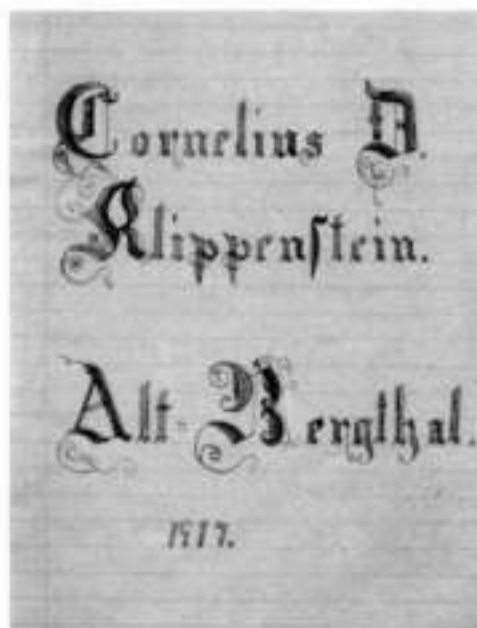 Cornelius D.
Klippenſtein.
Alt-Bergthal.
1917.